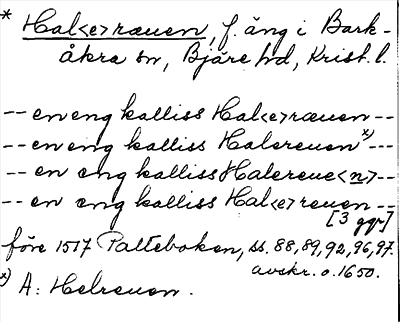 * Hal<e>ræuen, f. äng i Bark-
åkra sn, Bjäre hd, Krist. l.
-- en eng kalliss Hal<e>ræuen --
-- en eng kalliss Halereuen *) --
-- en eng kalliss Halereue<n> --
-- en eng kalliss Hal<e>reuen --
[3 ggr]
före 1517 Palteboken, ss. 88,89,92,96,97.
avskr. o. 1650.
*) A: Helreuen.